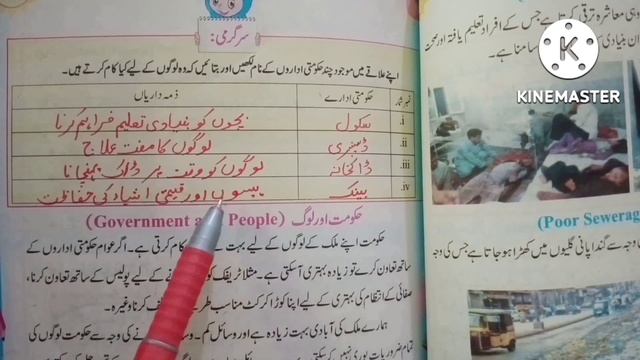 سرگرمی:
اپنے علاقے میں موجود چند حکومتی اداروں کے نام لکھیں اور بتائیں کہ وہ لوگوں کے لیے کیا کام کرتے ہیں۔
نمبر شمار حکومتی ادارے ذمہ داریاں
i. سکول بچوں کو بنیادی تعلیم فراہم کرنا
ii. ڈسپنسری لوگوں کا مفت علاج
iii. ڈاکخانہ لوگوں کو وقت پر ڈاک پہنچانا
iv. بینک پیسوں اور قیمتی اشیاء کی حفاظت
حکومت اور لوگ (Government and People)
حکومت اپنے ملک کے لوگوں کے لیے بہت کام کرتی ہے۔ اگر عوام حکومتی اداروں کے
ساتھ تعاون کرے تو زیادہ بہتری آسکتی ہے۔ مثلاً ٹریفک کو کے لیے پولیس کے ساتھ تعاون کرنا،
صفائی کے انتظام کی بہتری کے لیے اپنا کوڑا کرکٹ مناسب کرنا وغیرہ۔
ہمارے ملک کی آبادی بہت زیادہ ہے اور وسائل کم۔ کی وجہ سے حکومت لوگوں کی
تمام ضروریات پوری نہیں کر سکتی
وہی معاشرہ ترقی کرتا ہے جس کے افراد تعلیم یافتہ اور صحت
ان بنیادی سامنا ہے۔
KINEMASTER
(Poor Sewerag
وجہ سے گندا پانی گلیوں میں کھڑا ہو جاتا ہے جس کی وجہ